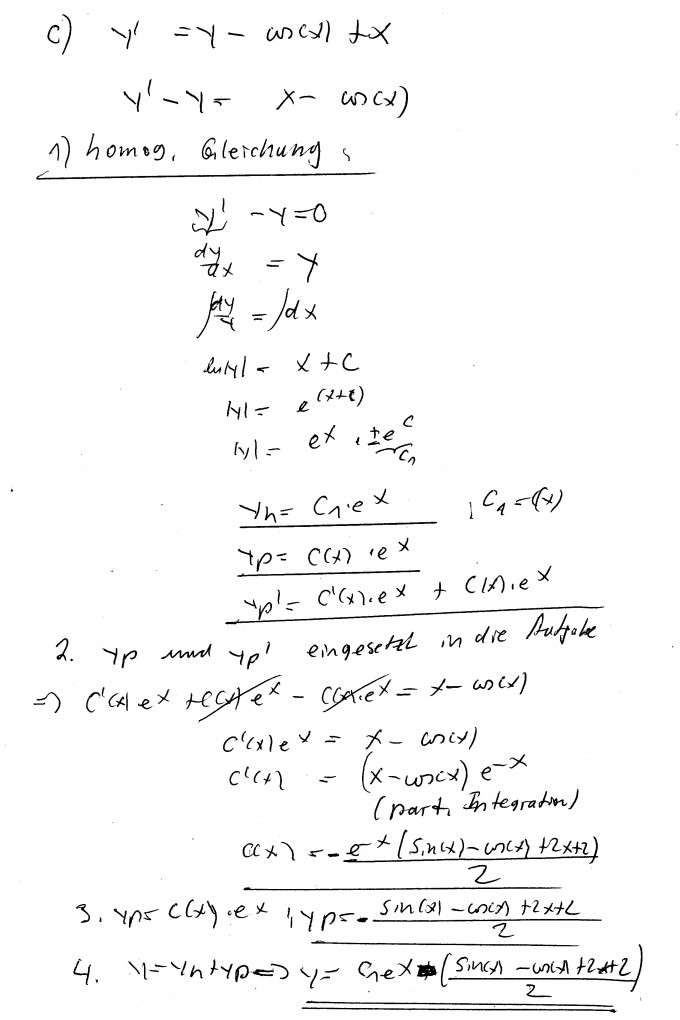 c) y' = y - cos(x) + x
y' - y = x - cos(x)
1) homog. Gleichung:
y' - y = 0
dy/dx = y
∫ dy/y = ∫ dx
ln|y| = x + C
|y| = e^(x+C)
|y| = e^x · ±e^C
C₁
yh = C₁·e^x , C₁ = C(x)
yp = C(x) · e^x
yp' = C'(x)·e^x + C(x)·e^x
2. yp und yp' eingesetzt in die Aufgabe
=> C'(x) e^x + C(x) e^x - C(x)·e^x = x - cos(x)
C'(x) e^x = x - cos(x)
C'(x) = (x - cos(x)) e^-x
(part. Integration)
C(x) = - e^-x (sin(x) - cos(x) + 2x + 2) / 2
3. yp = C(x) · e^x ; yp = - sin(x) - cos(x) + 2x + 2 / 2
4. y = yh + yp => y = C₁e^x - (sin(x) - cos(x) + 2x + 2) / 2